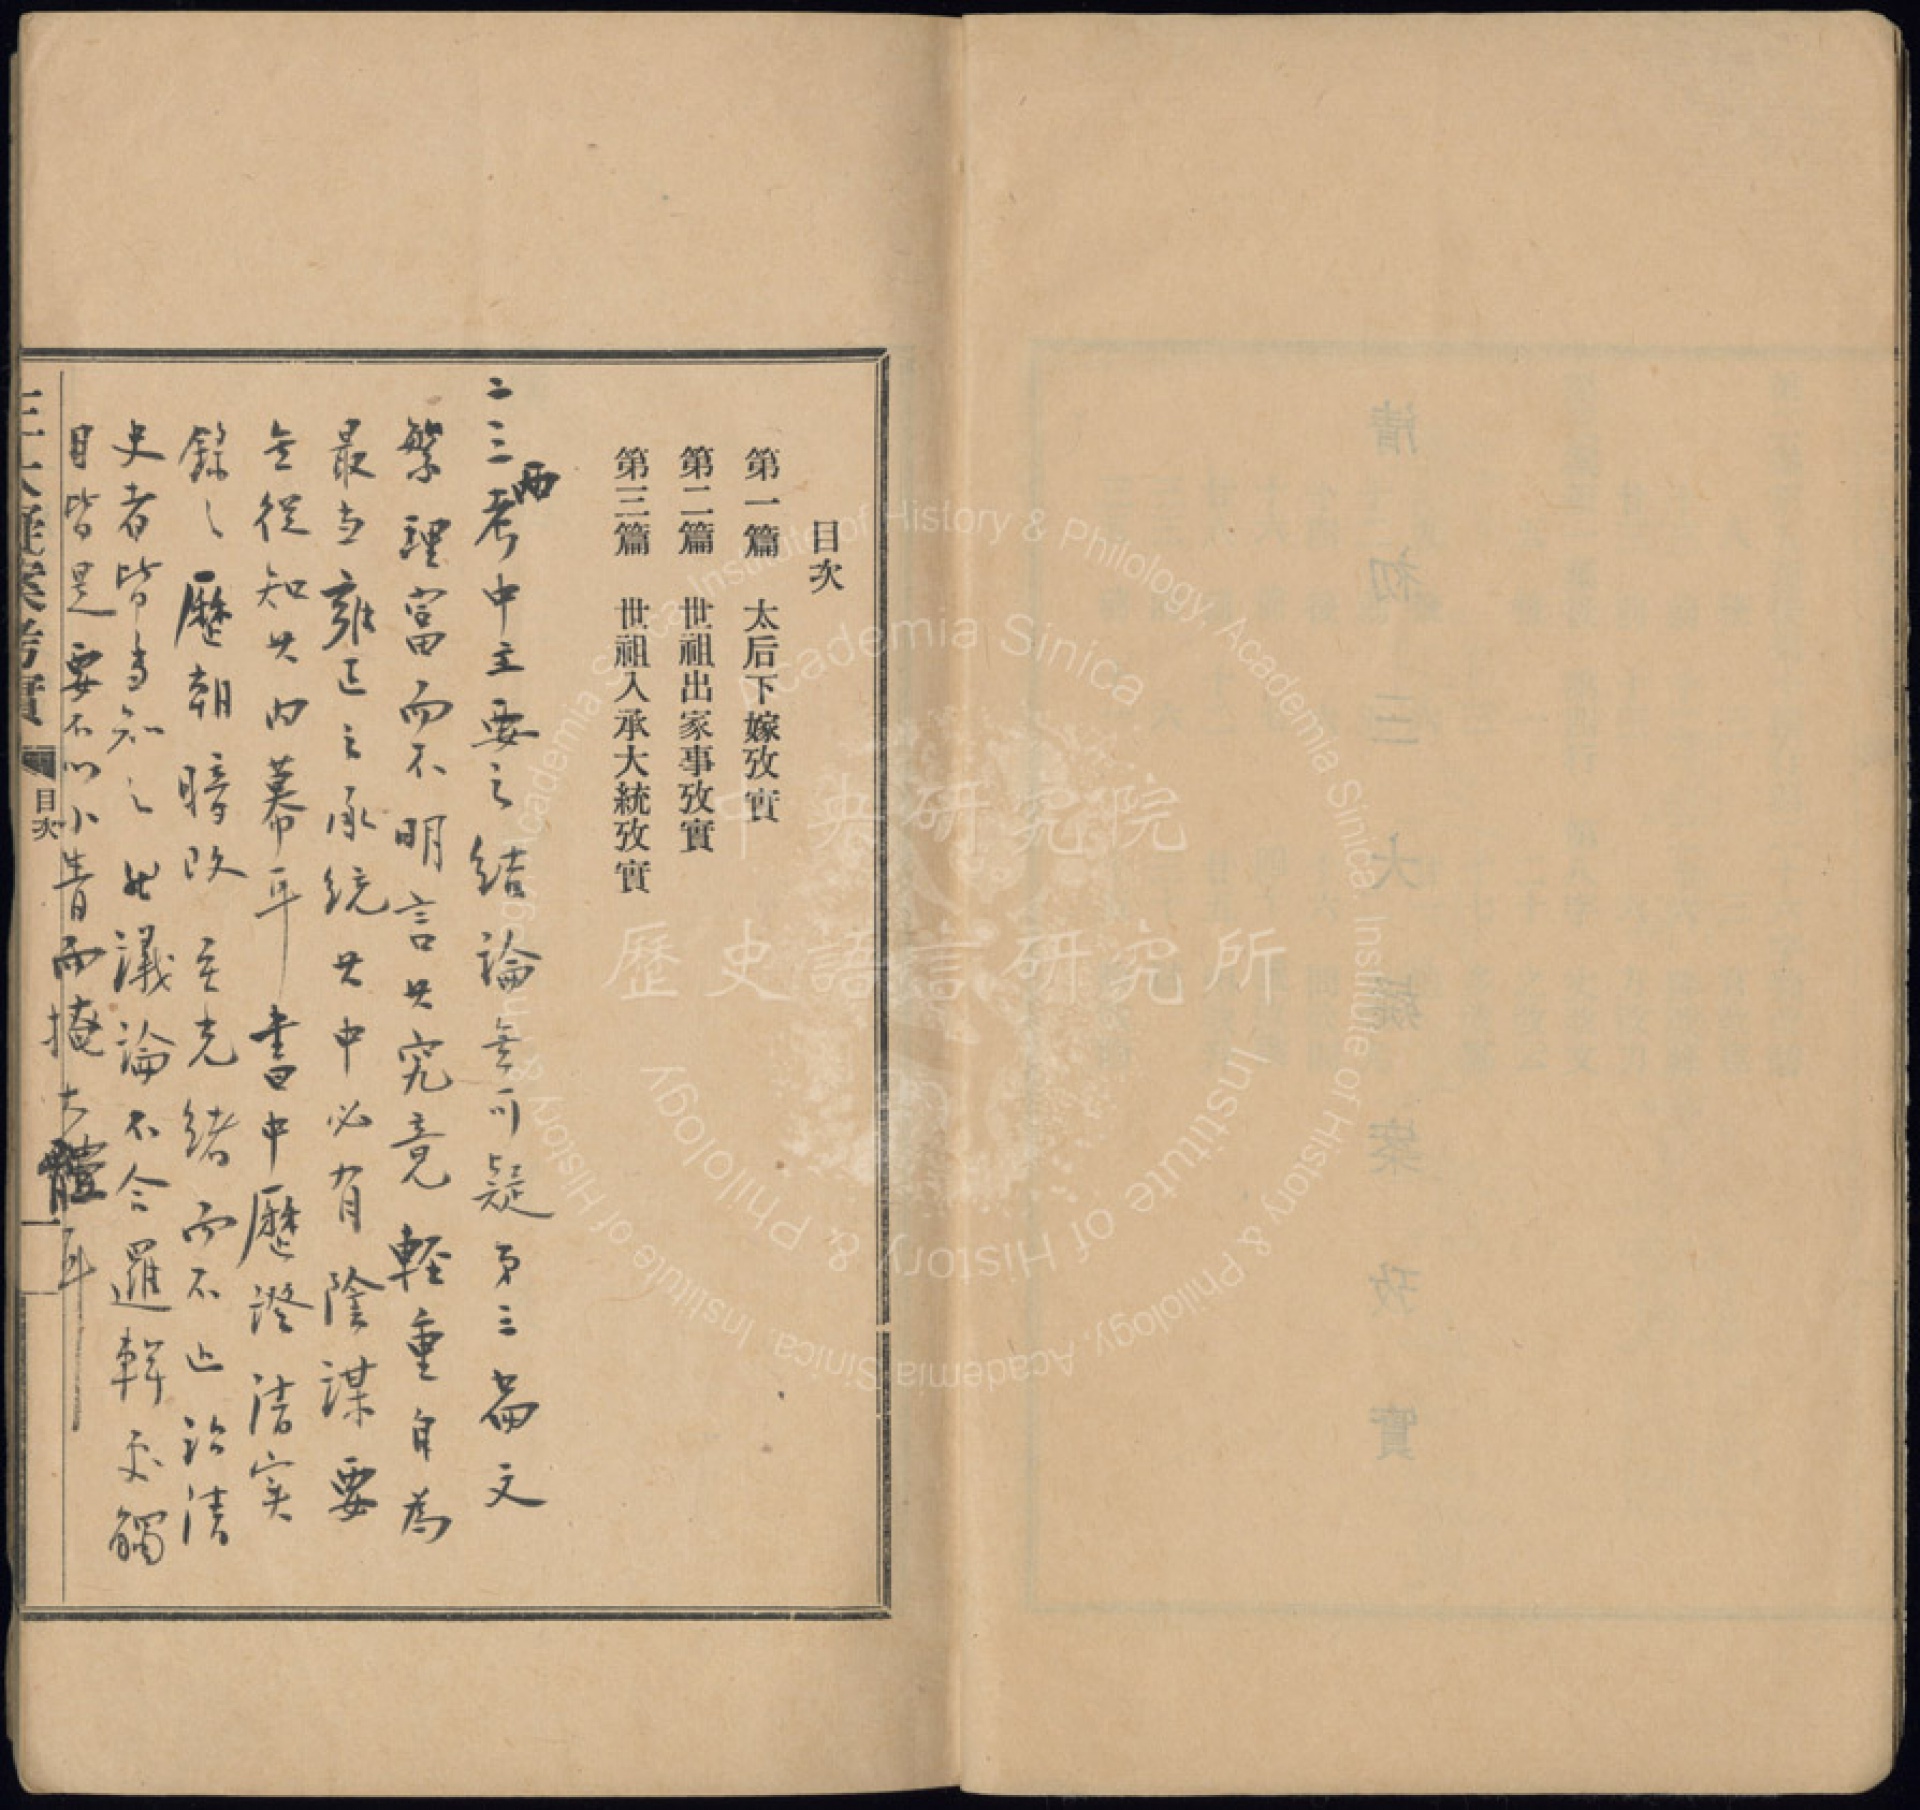 清初三大疑案攷實
目次
第一篇　太后下嫁攷實
第二篇　世祖出家事攷實
第三篇　世祖入承大統攷實
二三兩考中主要之結論無可疑第三篇文
繁理富而不明言其究竟輕重自為
最当雍正之承統其中必有陰謀要
無從知其內幕耳書中歷證清实
錄之歷朝暗改至光緒而不止治清
史者皆当知之其議論不合邏輯處觸
目皆是要不以小眚而掩大體耳
三大疑案考實　目次　一
中央研究院
歷史語言研究所
Institute of History & Philology, Academia Sinica